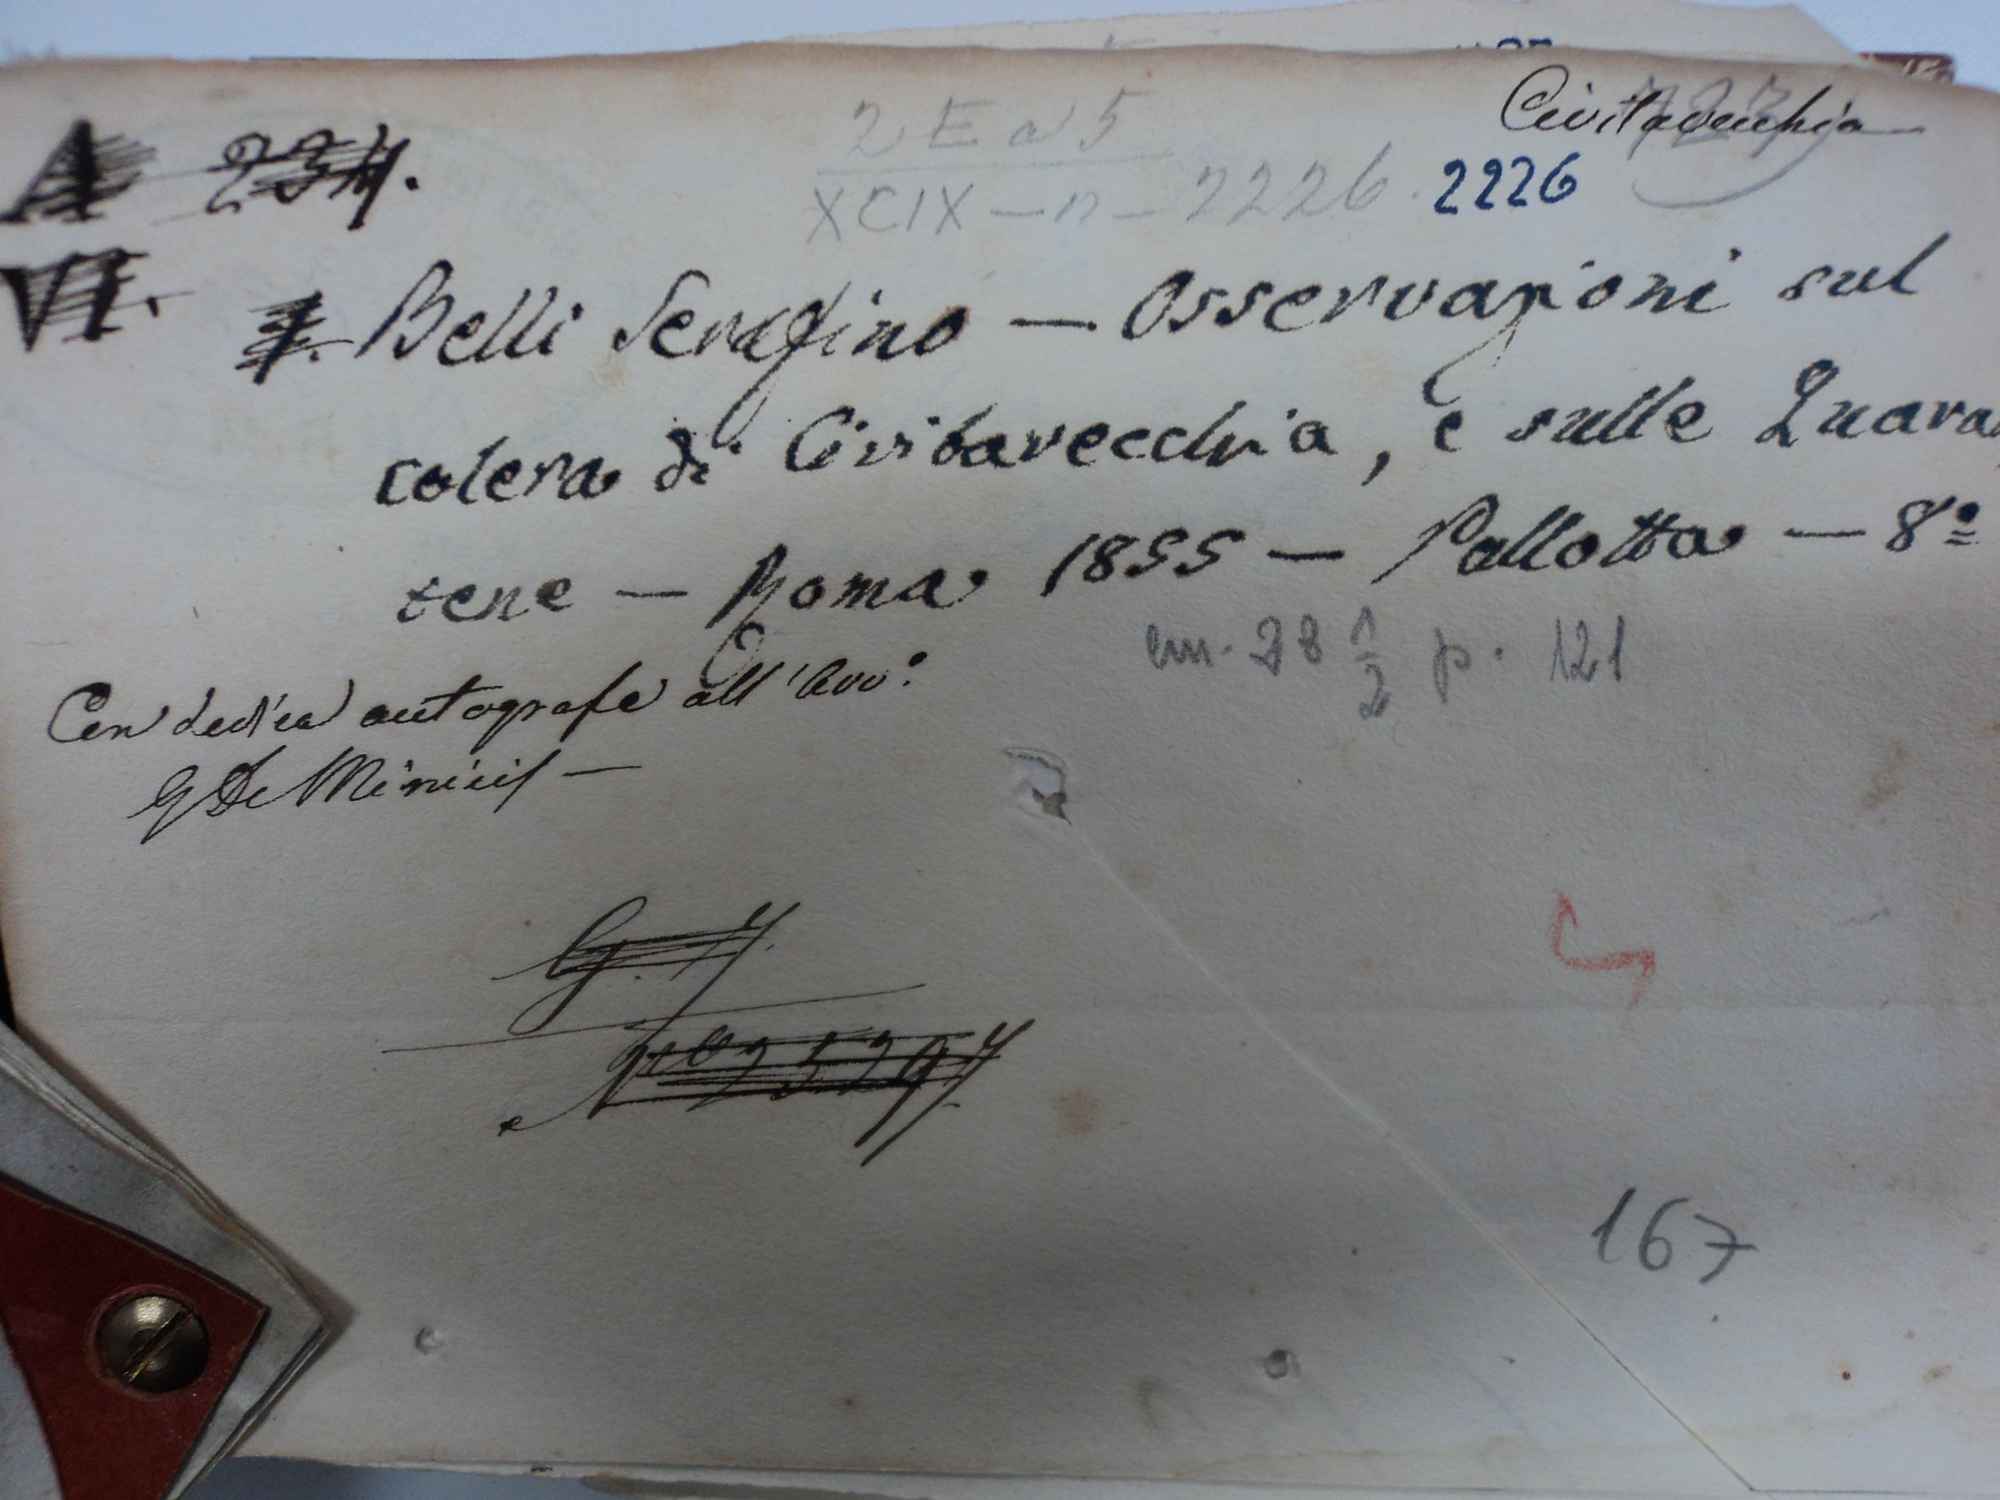 Civitavecchia
A 234.
2 E a 5
XCIX — n — 2226 2226
VI.
Belli Serafino — Osservazioni sul
colera di Civitavecchia, e sulle Quaran
tene — Roma 1855 — Pallotta — 8º
cm. 28 1/2 p. 121
Con dedica autografa all'Avv.º
G De Minicis —
G. 4.
167